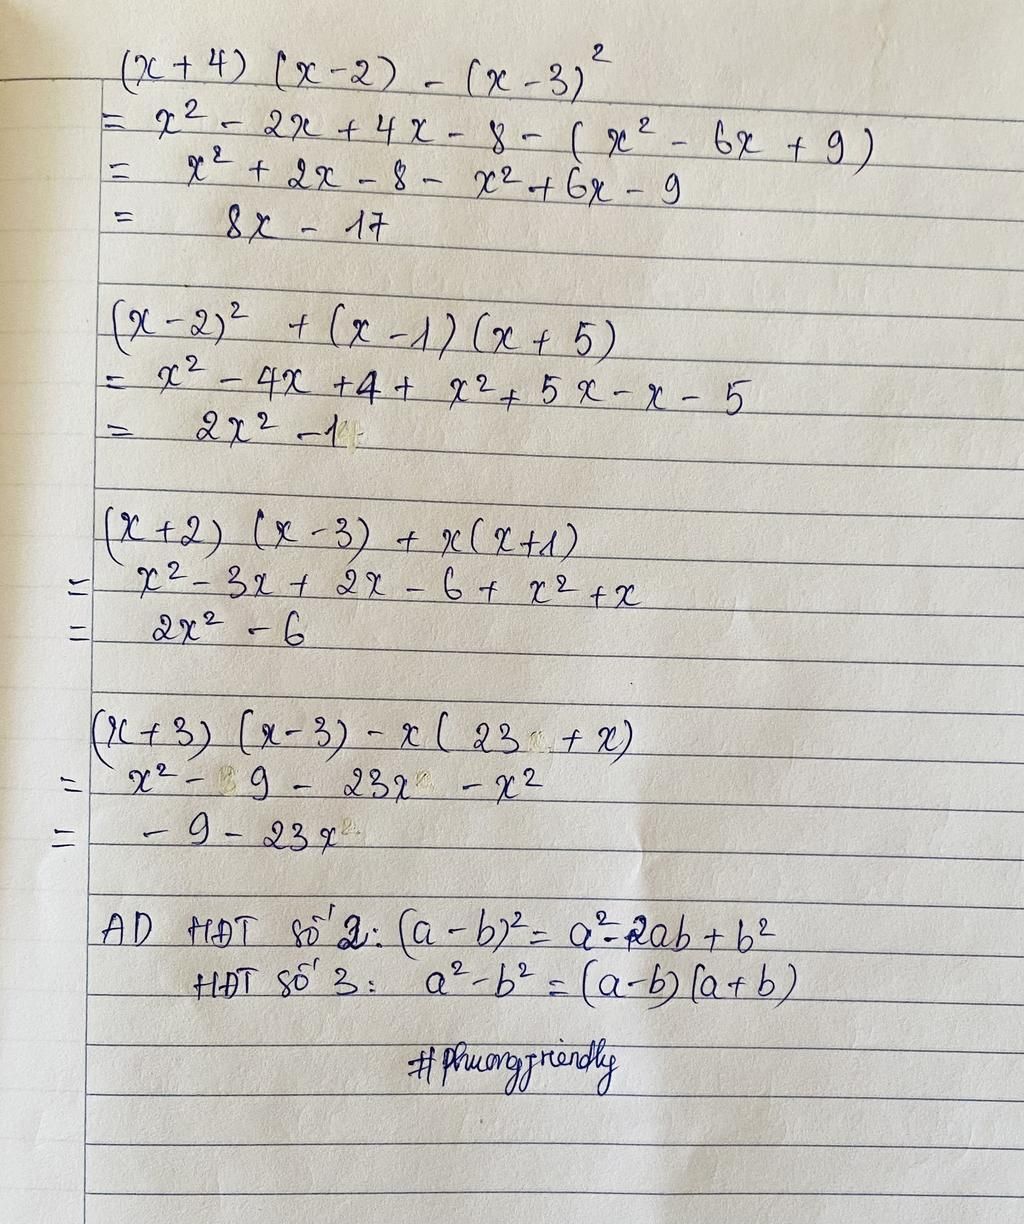 (x + 4) (x - 2) - (x - 3)²
= x² - 2x + 4x - 8 - (x² - 6x + 9)
= x² + 2x - 8 - x² + 6x - 9
= 8x - 17
(x - 2)² + (x - 1) (x + 5)
= x² - 4x + 4 + x² + 5x - x - 5
= 2x² - 1
(x + 2) (x - 3) + x(x + 1)
= x² - 3x + 2x - 6 + x² + x
= 2x² - 6
(x + 3) (x - 3) - x (23 + x)
= x² - 9 - 23x - x²
= - 9 - 23x
AD HĐT số 2: (a - b)² = a² - 2ab + b²
HĐT số 3: a² - b² = (a - b) (a + b)
#phuongfriendly